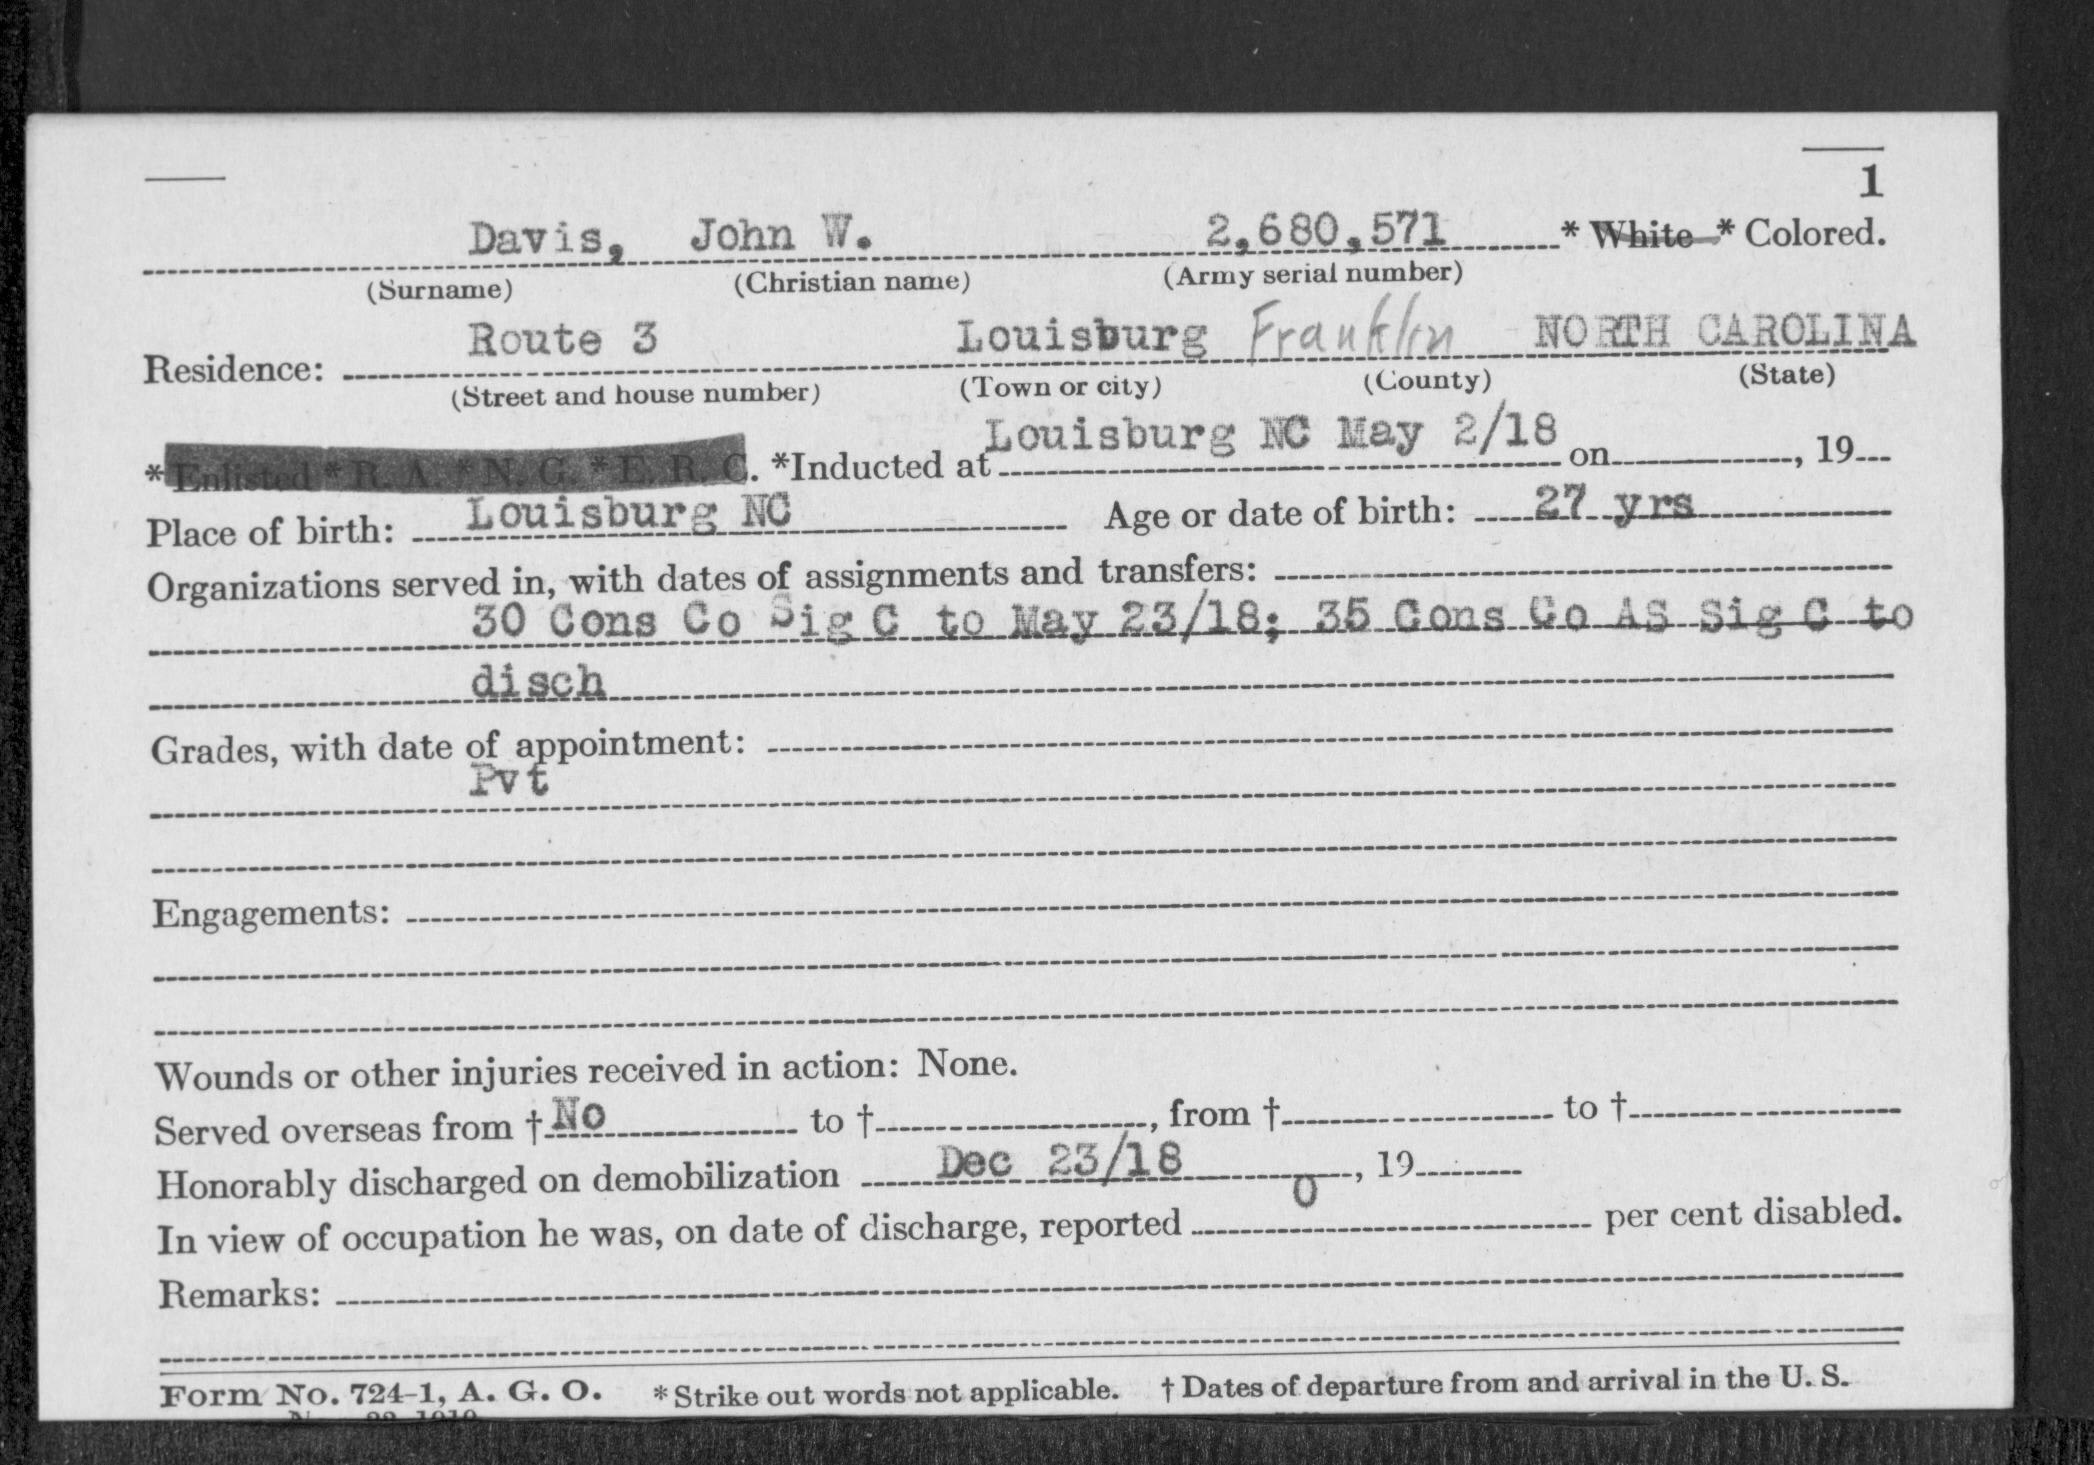 1
Davis, John W. 2,680,571 * White * Colored.
(Surname) (Christian name) (Army serial number)
Route 3 Louisburg Franklin NORTH CAROLINA
Residence:
(Street and house number) (Town or city) (County) (State)
Louisburg NC May 2/18
* Enlisted * R. A. * N. G. * E. R. C. *Inducted at on , 19
Place of birth: Louisburg NC Age or date of birth: 27 yrs
Organizations served in, with dates of assignments and transfers:
30 Cons Co Sig C to May 23/18; 35 Cons Co AS Sig C to
disch
Grades, with date of appointment:
Pvt
Engagements:
Wounds or other injuries received in action: None.
Served overseas from † No to † , from † to †
Honorably discharged on demobilization Dec 23/18 , 19
In view of occupation he was, on date of discharge, reported 0 per cent disabled.
Remarks:
Form No. 724-1, A. G. O. * Strike out words not applicable. † Dates of departure from and arrival in the U. S.